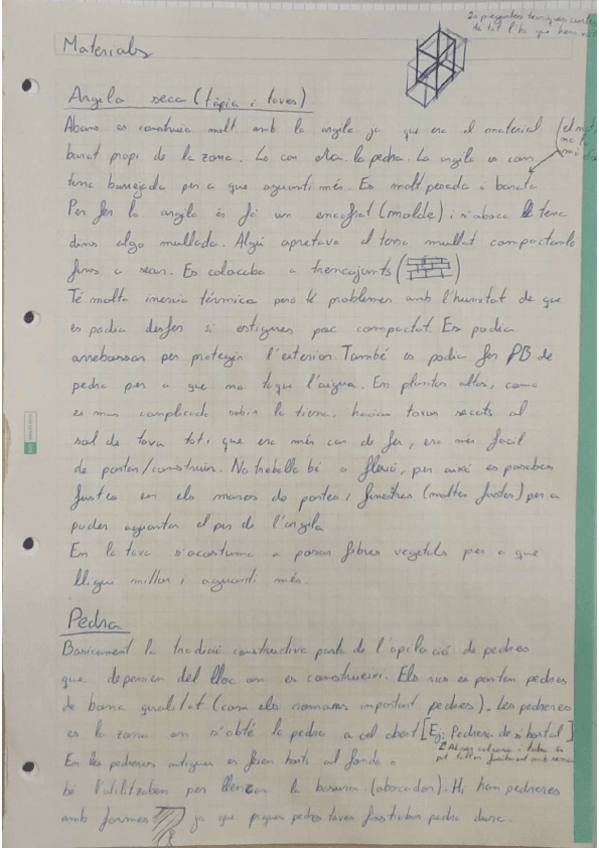 20 preguntes teòriques curtes
de tot l'lo que hem vist
Materials
Argila seca (tàpia i tovas)
Abans es construia molt amb la argila ja que era el material
barat propi de la zona. Lo car era la pedra. La argila es com
terra barrejada per a que aguanti més. Es molt pesada i barata
Per fer la argila és fa un encofrat (molde) i s'aboca la terra
dins algo mullada. Algú apretava el terra mullat compactanlo
fins a secar. Es colocaba a trencajunts
Té molta inercia térmica pero té problemes amb l'humitat de que
es podia desfer si estigues poc compactat. Es podia
arrebossar per protegir l'exterior. També es podia fer PB de
pedra per a que no toque l'aigua. En plantes altes, com a
es mes complicado subir la tierra, hacian tovas secats al
sol de tova tot i que era més car de fer, era més facil
de portar/construir. No treballa bé a flexió, per això es posaben
fustes en els marcs de portes i finestres (moltes fustes) per a
poder aguantar el pes de l'argila
En la tova s'acostuma a posar fibres vegetals per a que
lligui millor i aguanti més.
Pedra
Basicament la tradició constructiva parte de l'apilació de pedres
que depenien del lloc on es construeixi. Els rics es porten pedres
de bona qualitat (com els romans important pedres). Les pedreres
es la zona on s'obté la pedra a cel obert [Ej: Pedrera de s'hostal]
En les pedreres antigues es feien horts al fondo o
bé l'utilitzaben per llençar la basura (abocador). Hi han pedreres
amb formes ja que piquen pedres toves frustraban pedra dura.